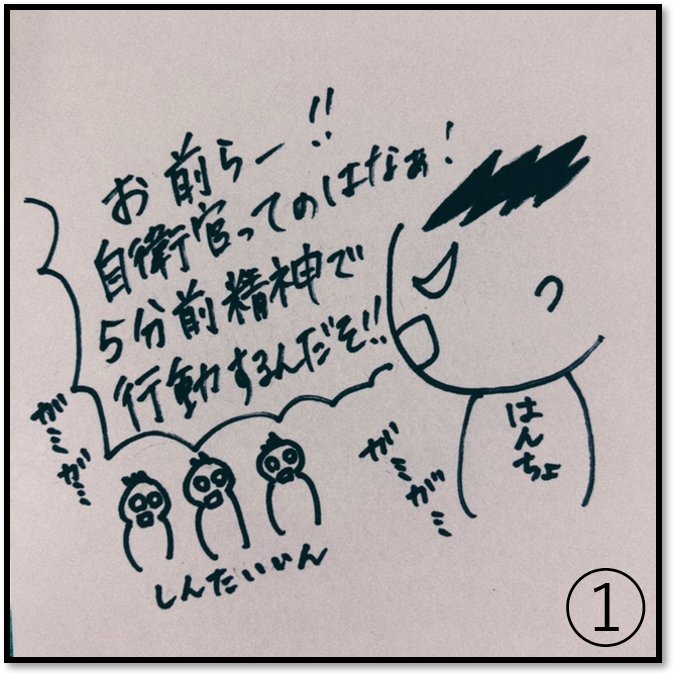 お前らー!!
自衛官ってのはなぁ!
5分前精神で
行動するんだぞ!!
ガミガミ…
ガミガミ…
はんちょ
しんたいいん
①